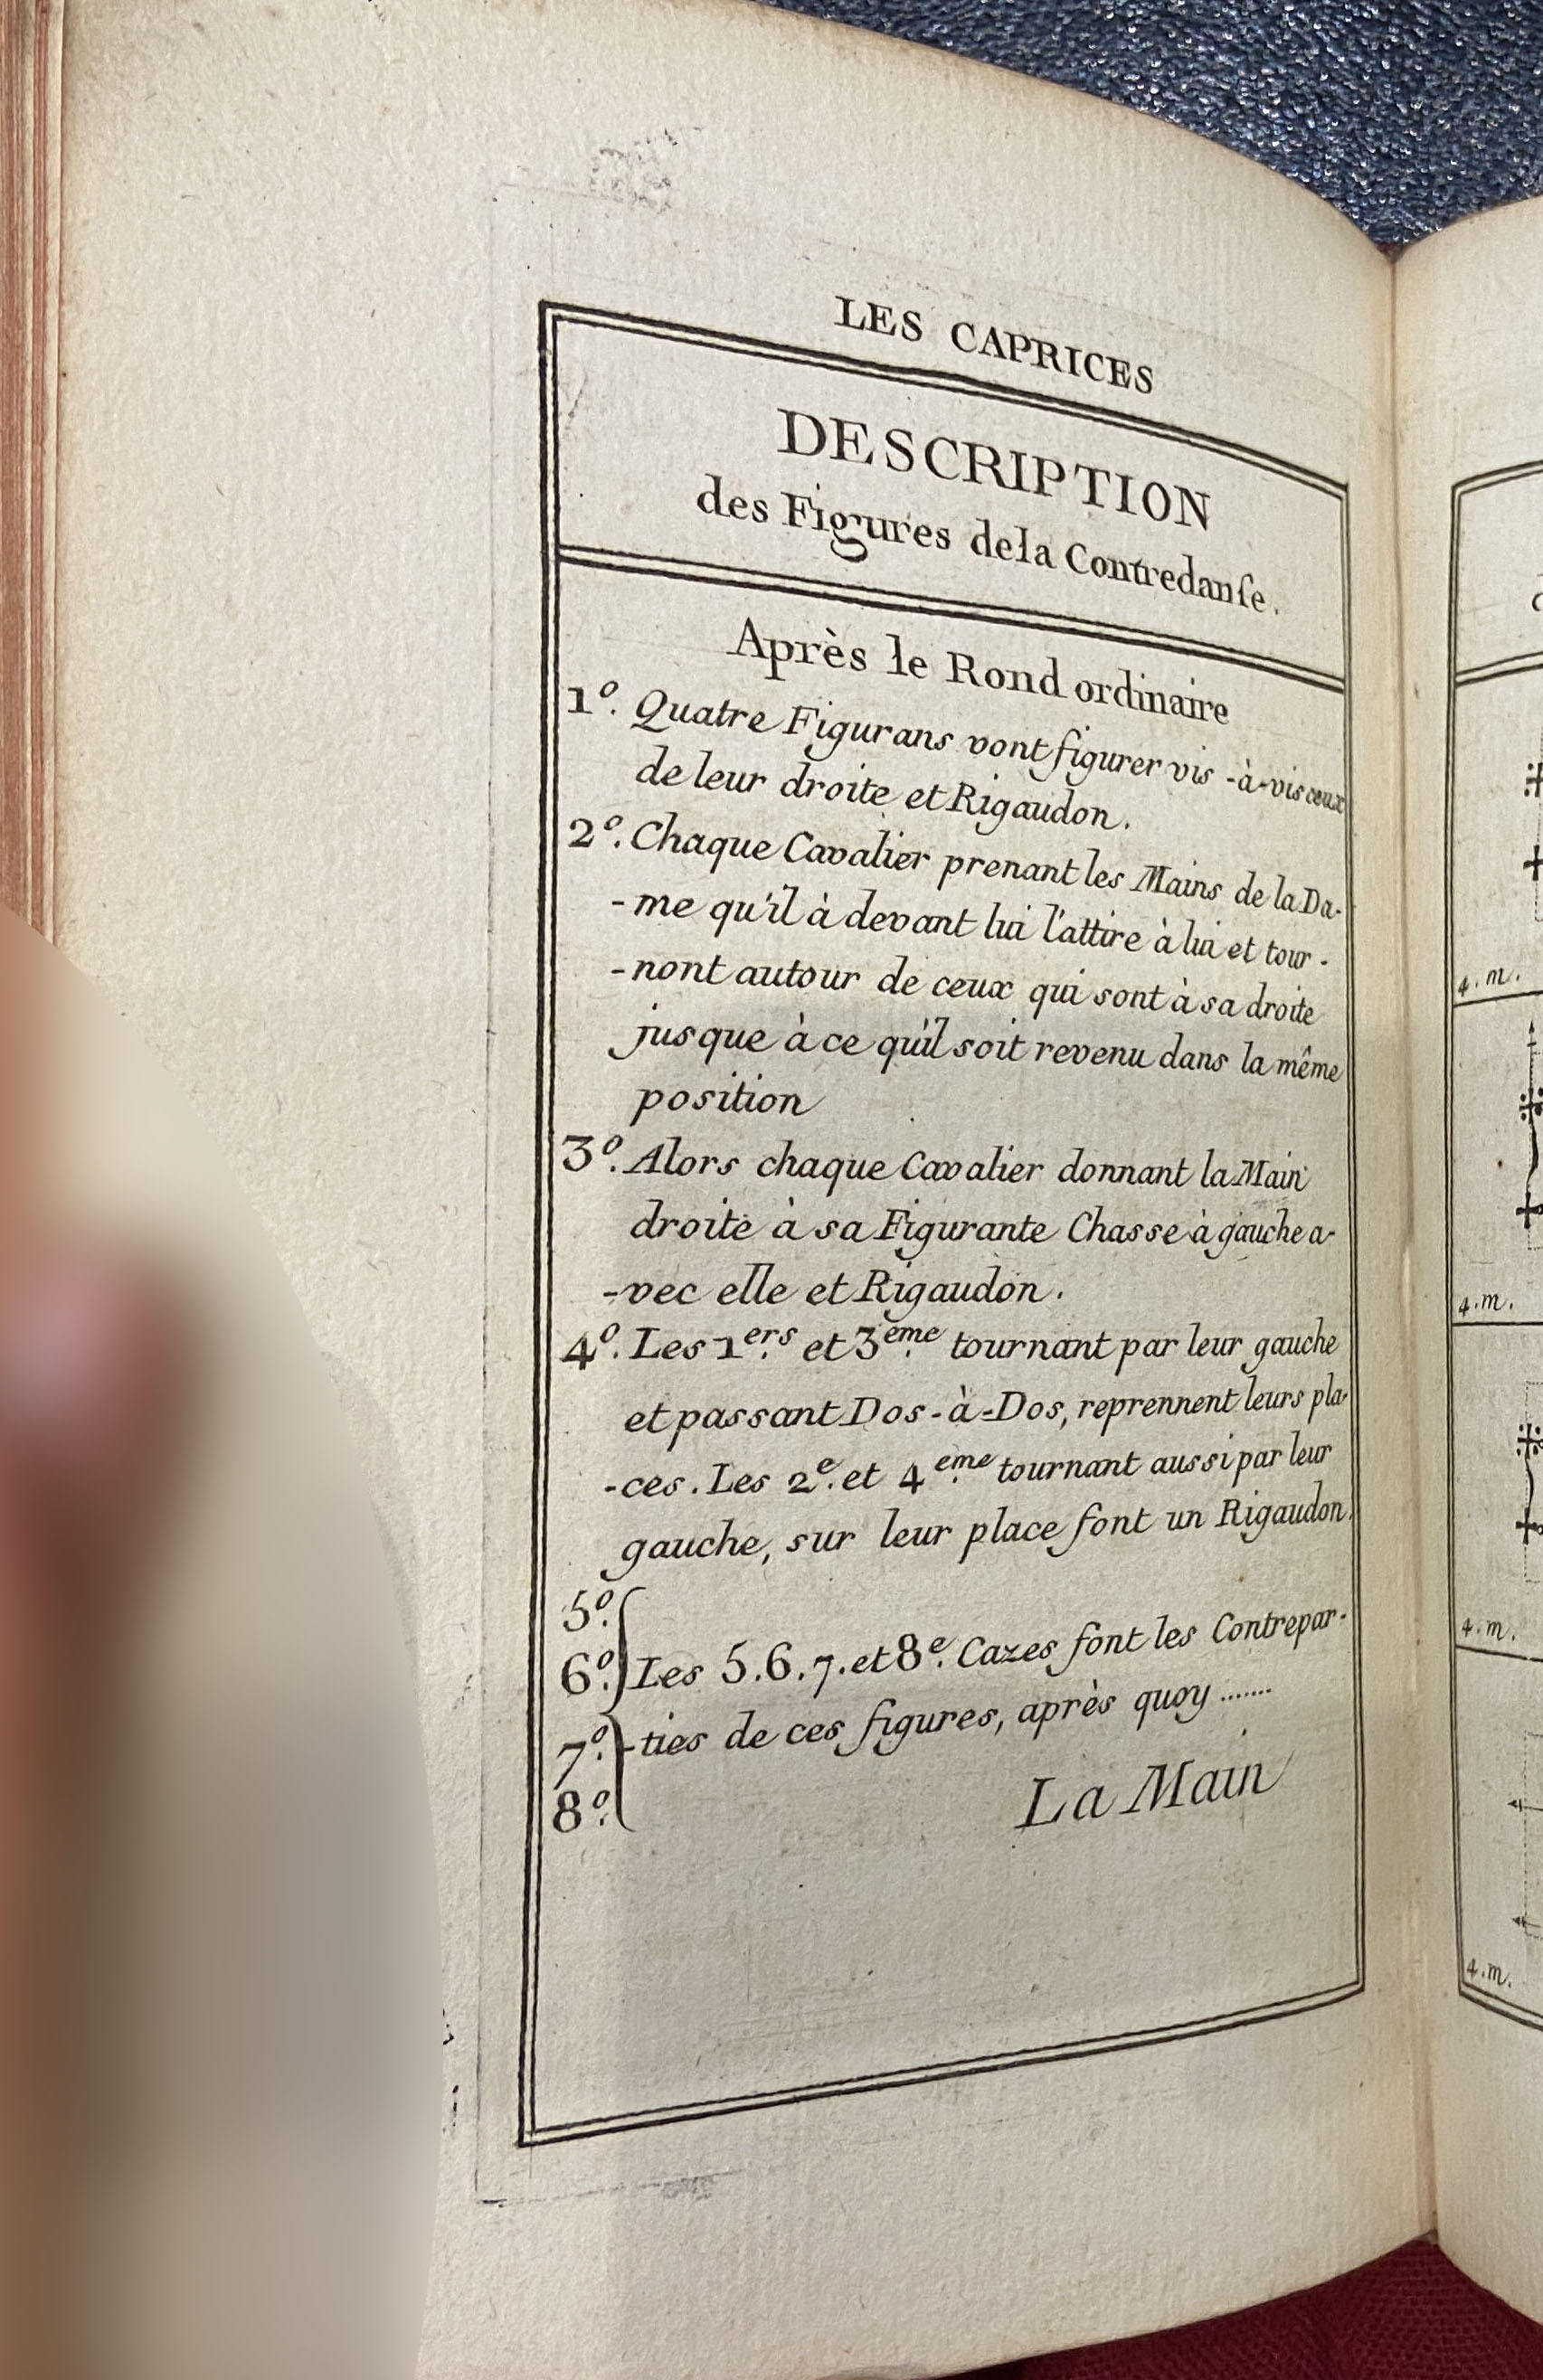 LES CAPRICES
DESCRIPTION
des Figures dela Contredanſe.
Après le Rond ordinaire
1º. Quatre Figurans vont figurer vis-à-vis ceux
de leur droite et Rigaudon.
2º. Chaque Cavalier prenant les Mains de la Da-
-me qu'il à devant lui l'attire à lui et tour-
-nont autour de ceux qui sont à sa droite
jusque à ce qu'il soit revenu dans la même
position
3º. Alors chaque Cavalier donnant la Main
droite à sa Figurante Chasse à gauche a-
-vec elle et Rigaudon.
4º. Les 1ers. et 3eme. tournant par leur gauche
et passant Dos-à-Dos, reprennent leurs pla-
-ces. Les 2e. et 4eme. tournant aussi par leur
gauche, sur leur place font un Rigaudon.
5º.
6º. Les 5.6.7. et 8e. Cazes font les Contrepar-
7º. -ties de ces figures, après quoy .......
8º.
La Main
4.m.
4.m.
4.m.
4.m.